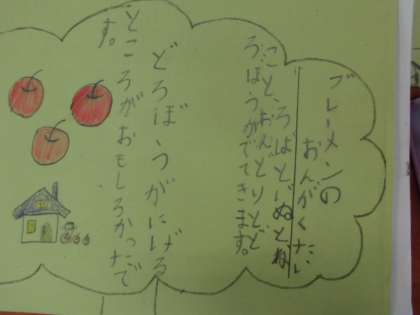 ブレーメンの
おんがくたい
ろばといぬとね
こと、おんどりとど
ろぼうがでてきます。
どろぼうがにげる
ところがおもしろかったで
す。